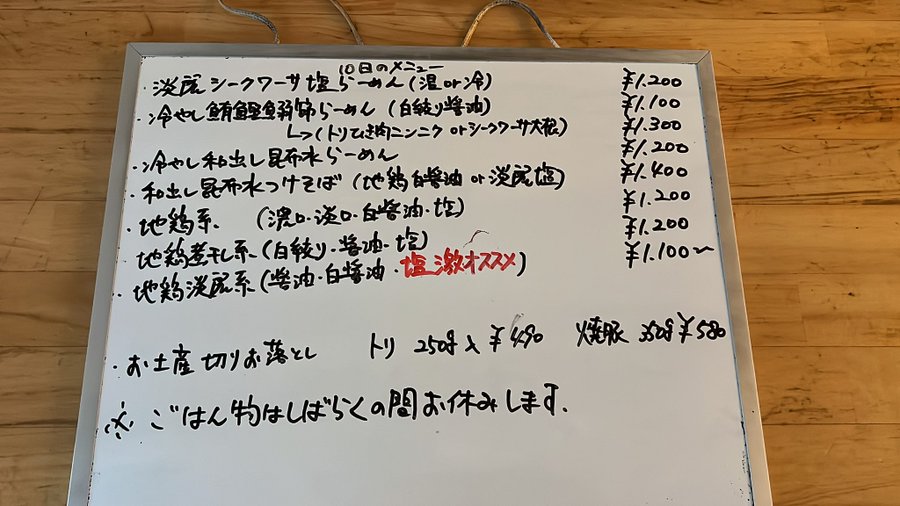 10日のメニュー
・淡麗シークワーサ塩らーめん(温or冷) ¥1.200
・冷やし鮪鰹鰯節らーめん (白絞り醤油) ¥1.100
↳(トリひき肉ニンニク orシークワーサ大根) ¥1.300
・冷やし和出し昆布水らーめん ¥1.200
・和出し昆布水つけそば (地鶏白醤油 or 淡麗塩) ¥1.400
・地鶏系 (濃口・淡口・白醤油・塩) ¥1.200
地鶏煮干し系 (白絞り・醤油・塩) ¥1.200
・地鶏淡麗系 (醤油・白醤油・塩激オススメ) ¥1.100〜
・お土産 切りお落とし トリ 250g入 ¥490 焼豚 350g ¥580
※ ごはん物はしばらくの間お休みします.